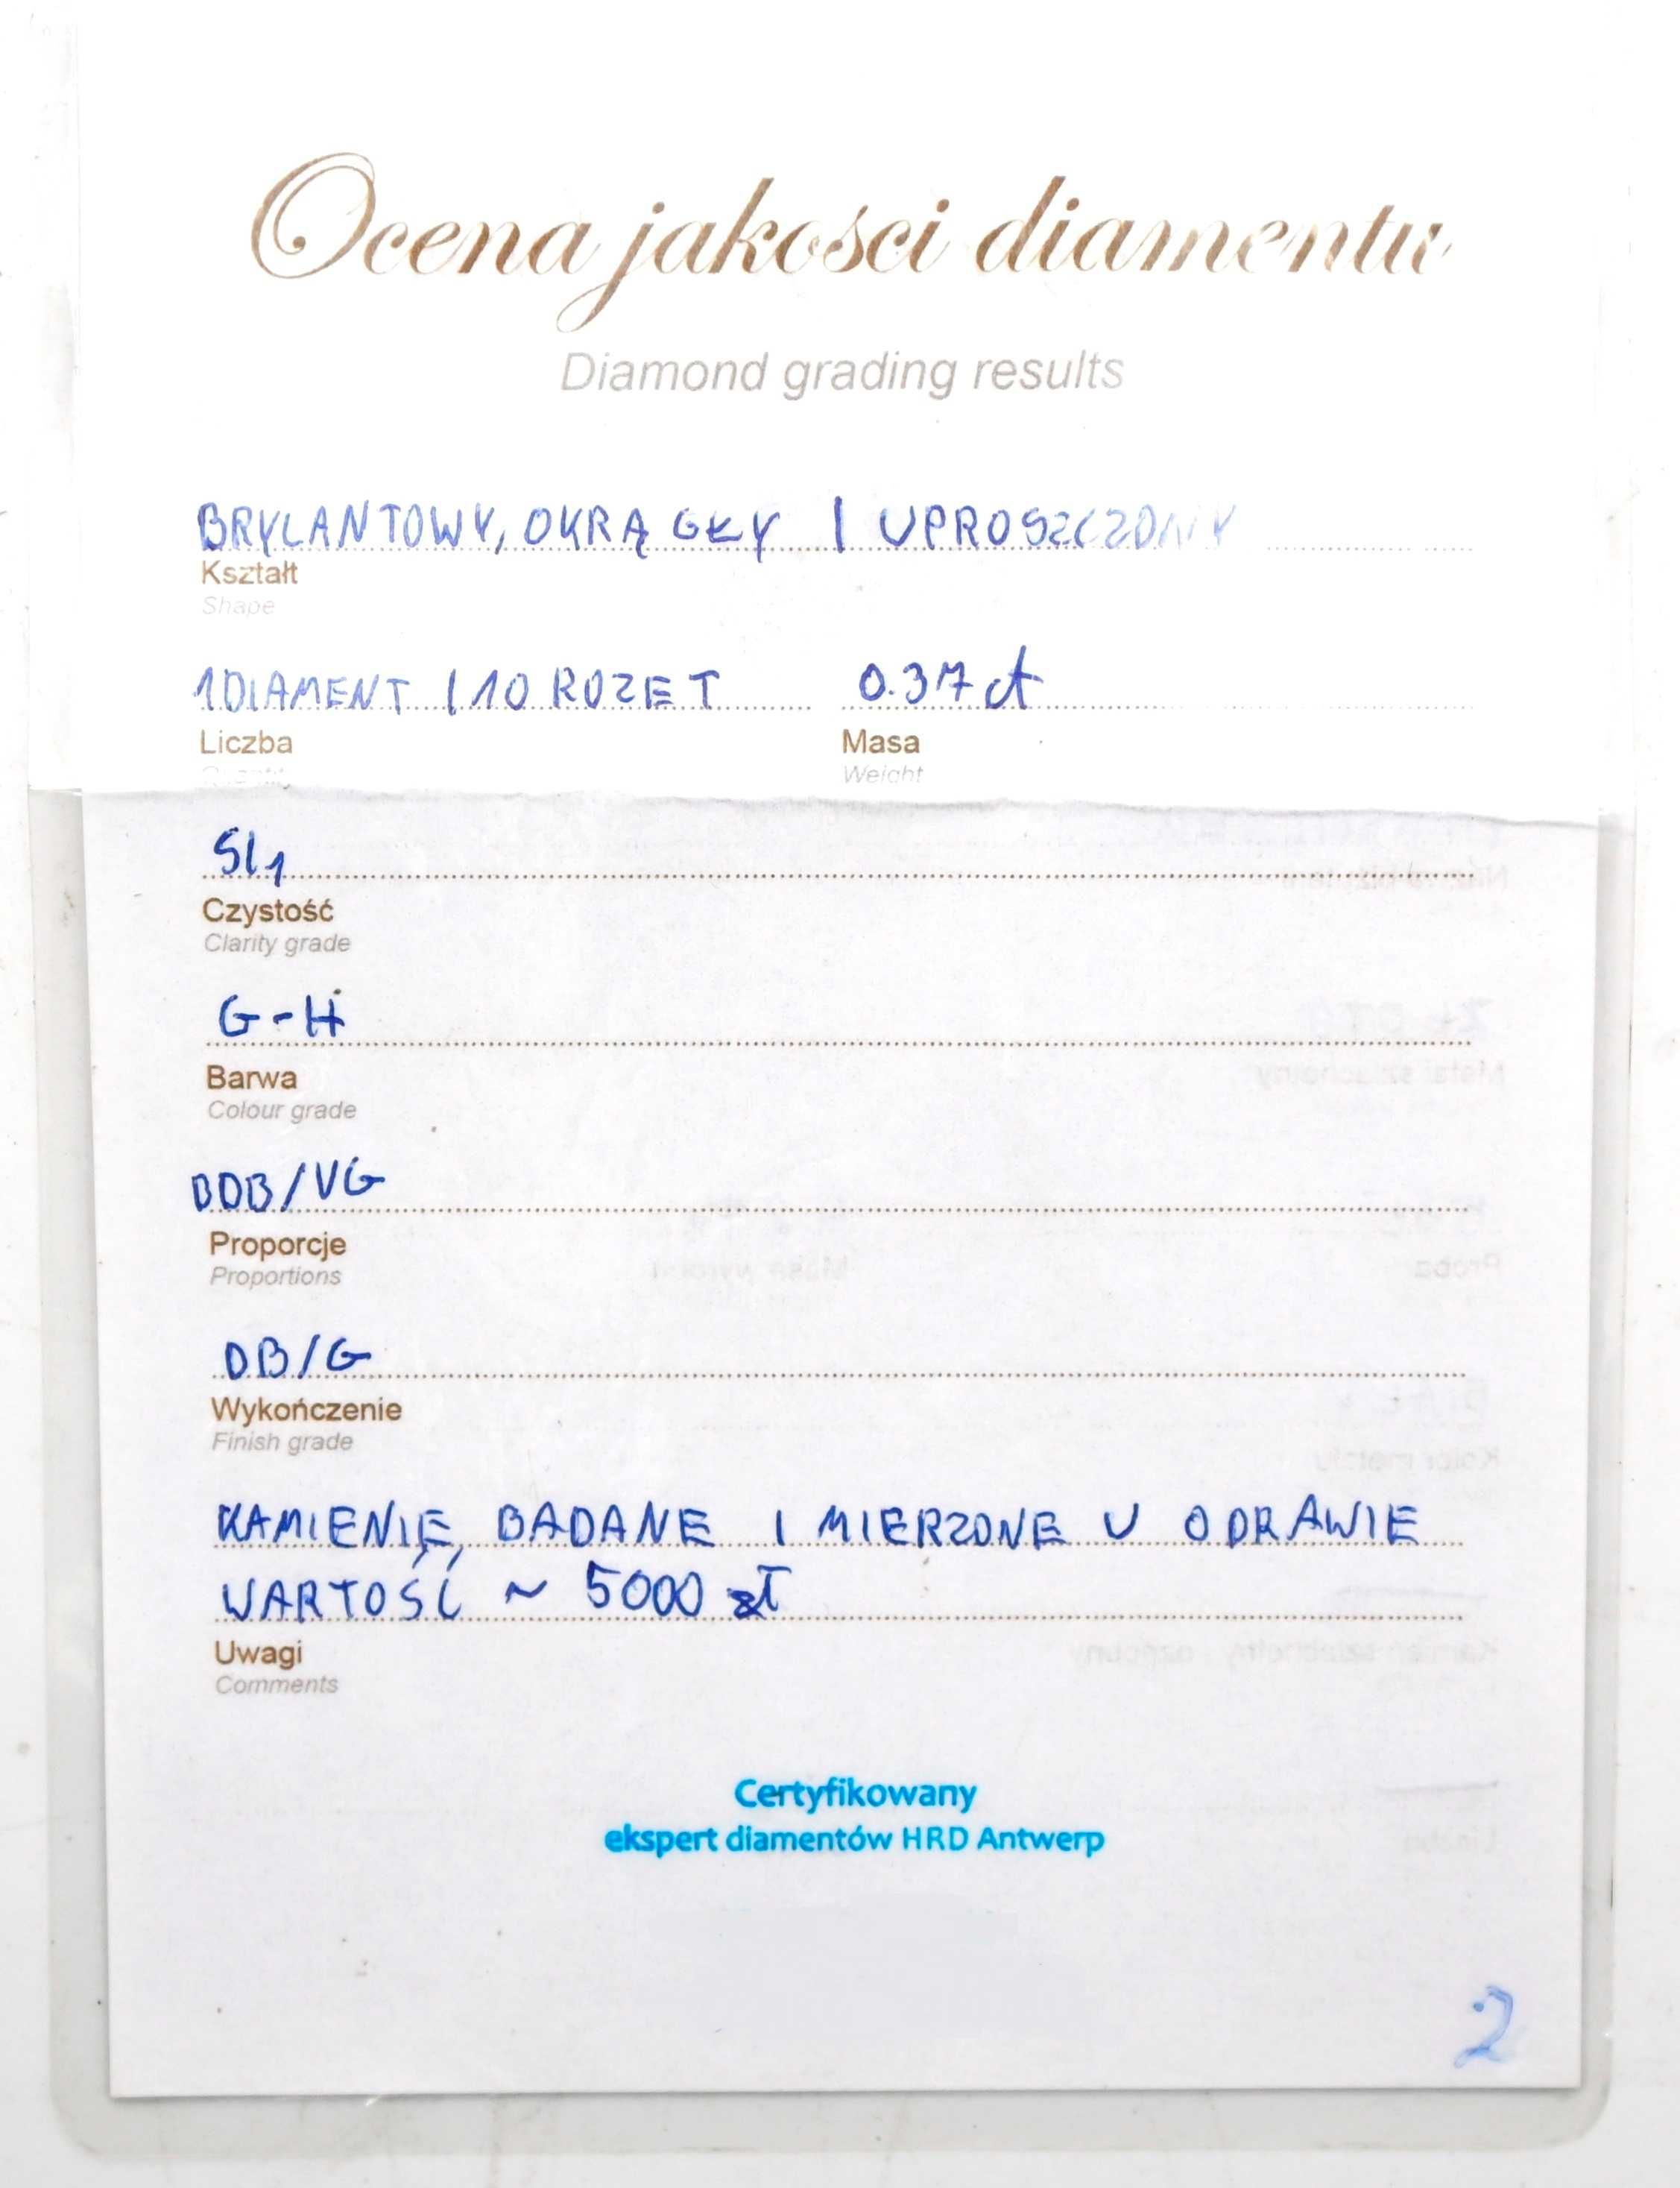 Ocena jakości diamentu
Diamond grading results
BRYLANTOWY, OKRĄGŁY I UPROSZCZONY
Kształt
Shape
1 DIAMENT I 10 ROZET 0.37 ct
Liczba Masa
Weight
SI1
Czystość
Clarity grade
G-H
Barwa
Colour grade
BDB/VG
Proporcje
Proportions
DB/G
Wykończenie
Finish grade
KAMIENIE, BADANE I MIERZONE W OPRAWIE
WARTOŚĆ ~ 5000 zł
Uwagi
Comments
Certyfikowany
ekspert diamentów HRD Antwerp
2